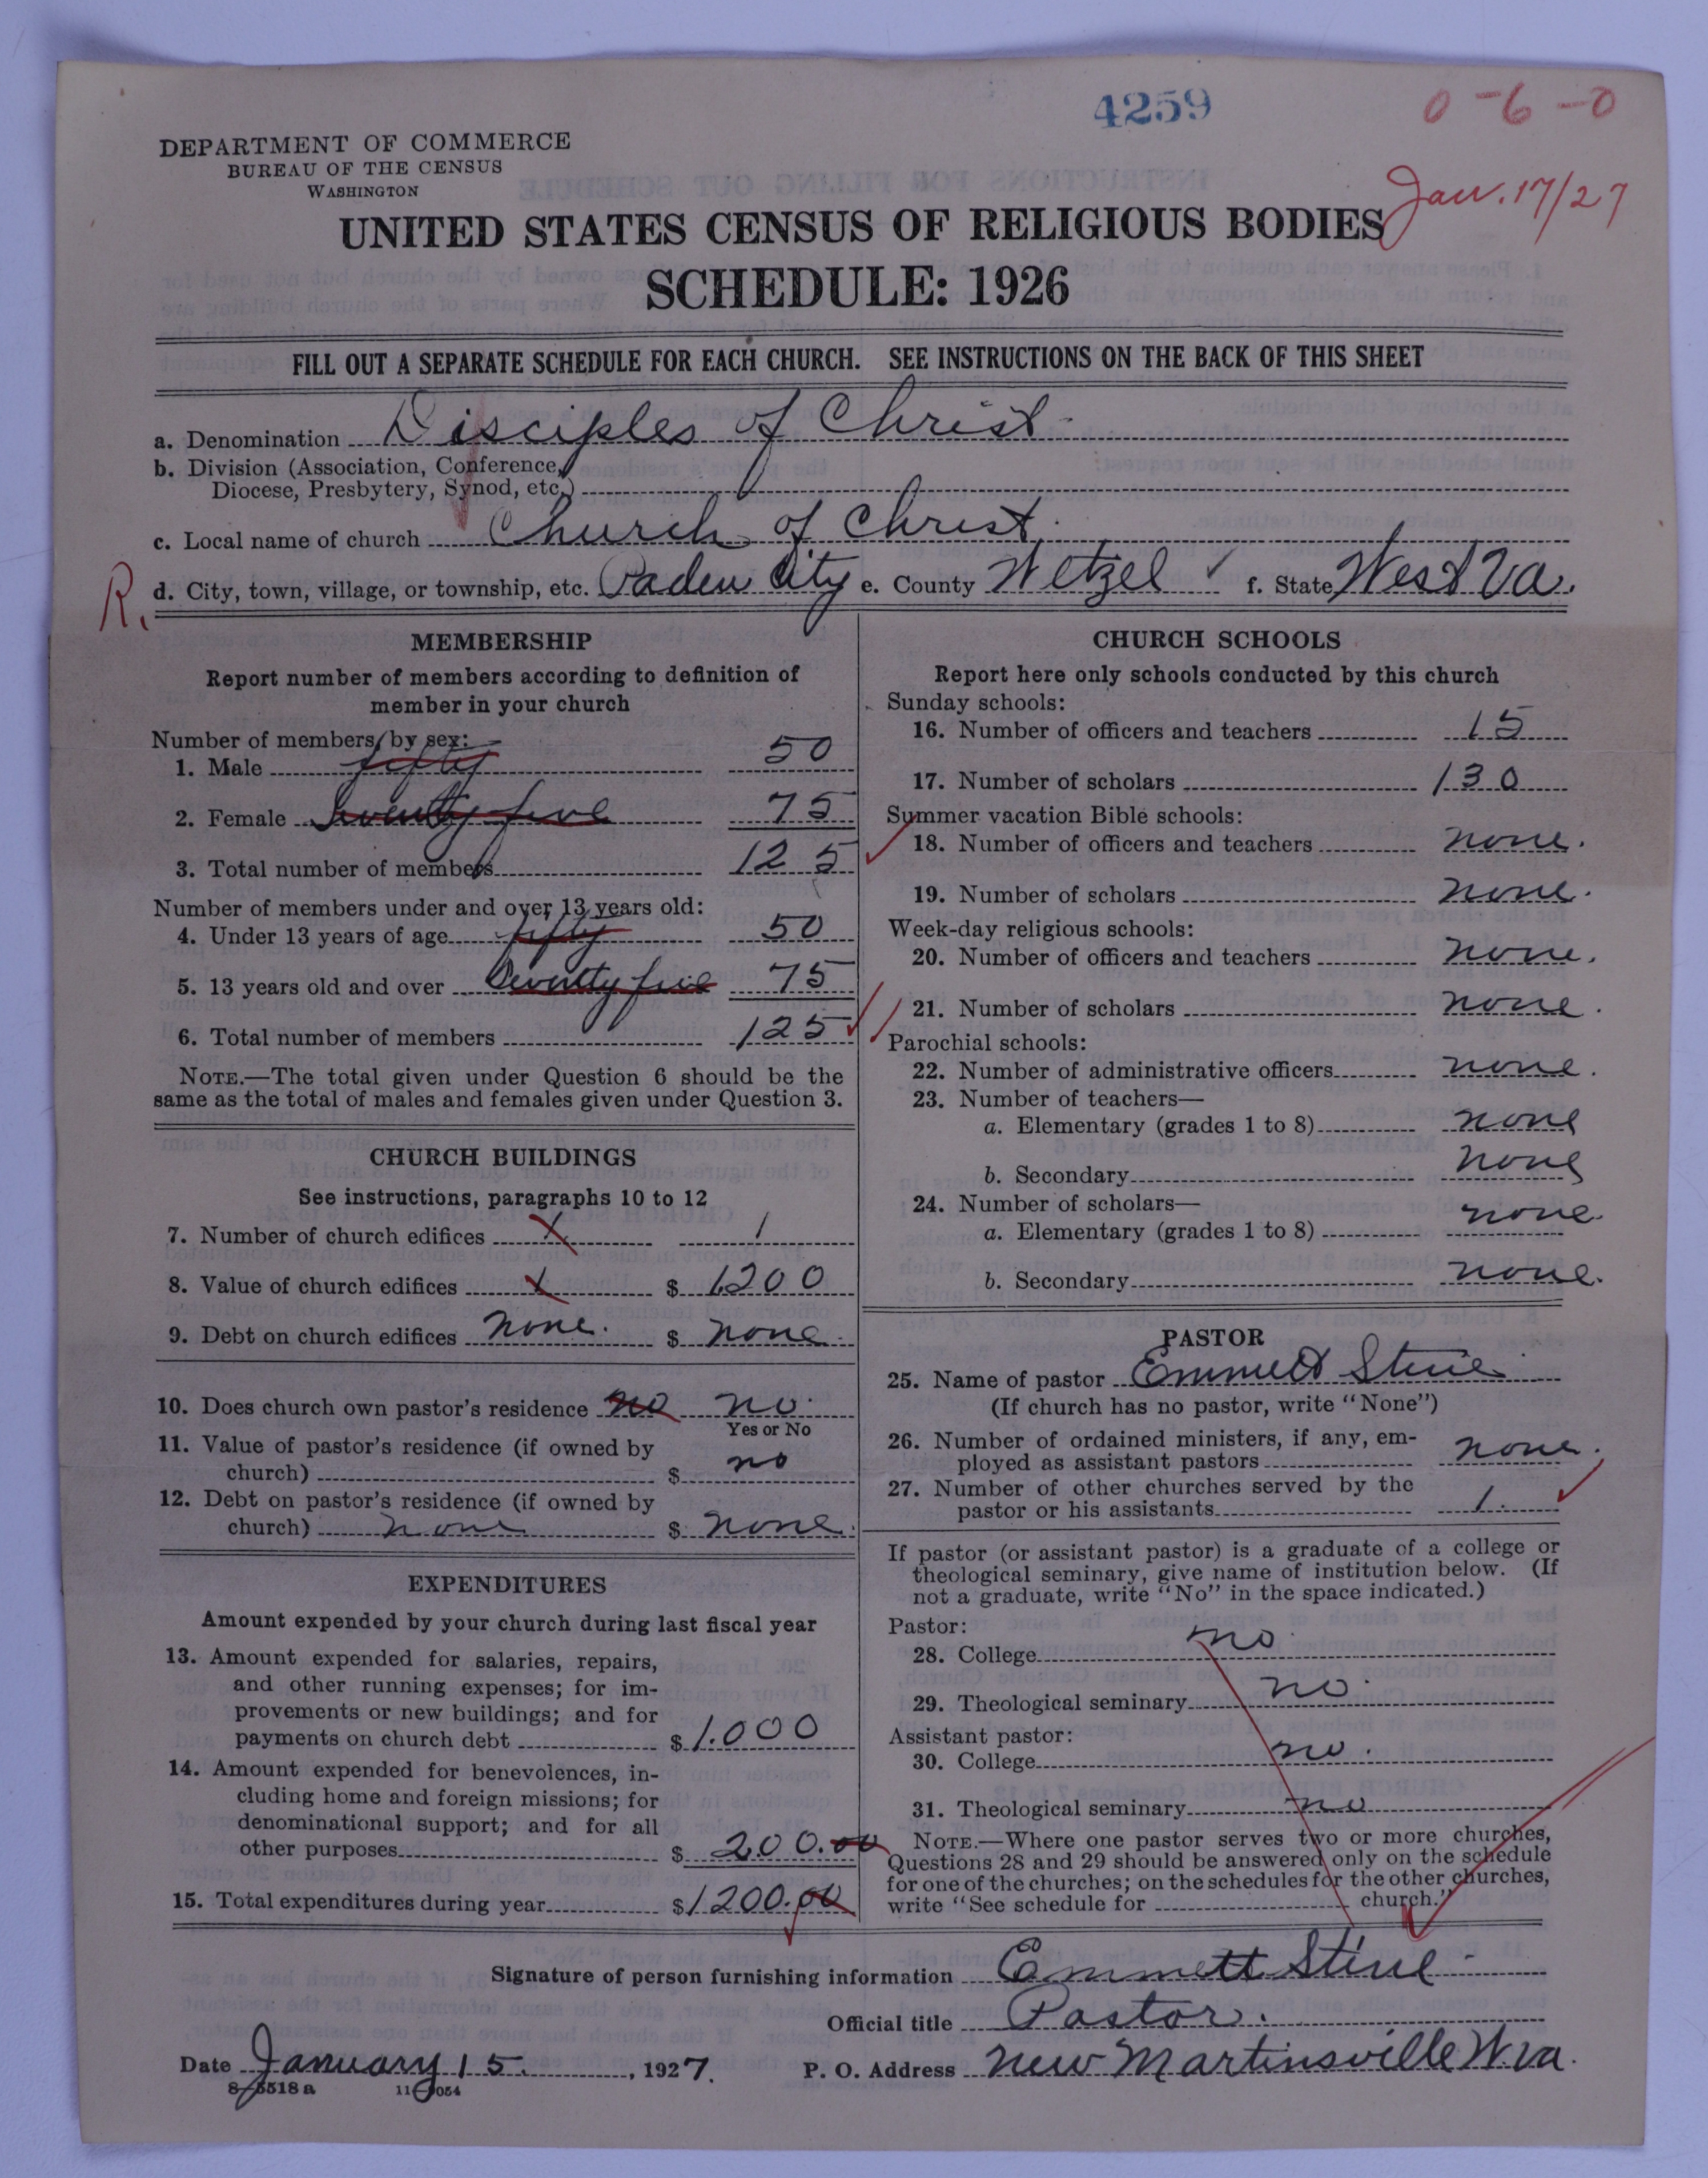 4259
0-6-0
DEPARTMENT OF COMMERCE
BUREAU OF THE CENSUS
WASHINGTON
Jan. 17/27
UNITED STATES CENSUS OF RELIGIOUS BODIES
SCHEDULE: 1926
FILL OUT A SEPARATE SCHEDULE FOR EACH CHURCH. SEE INSTRUCTIONS ON THE BACK OF THIS SHEET
a. Denomination Disciples of Christ
b. Division (Association, Conference,
Diocese, Presbytery, Synod, etc.)
c. Local name of church Church of Christ.
R. d. City, town, village, or township, etc. Paden City e. County Wetzel f. State West Va.
MEMBERSHIP
Report number of members according to definition of
member in your church
Number of members by sex:
1. Male fifty 50
2. Female Seventy five 75
3. Total number of members 125
Number of members under and over 13 years old:
4. Under 13 years of age fifty 50
5. 13 years old and over Seventy five 75
6. Total number of members 125
NOTE.—The total given under Question 6 should be the
same as the total of males and females given under Question 3.
CHURCH BUILDINGS
See instructions, paragraphs 10 to 12
7. Number of church edifices 1 1
8. Value of church edifices 1 $ 1200
9. Debt on church edifices none. $ none.
10. Does church own pastor's residence no no.
Yes or No
11. Value of pastor's residence (if owned by
church) $ no
12. Debt on pastor's residence (if owned by
church) none $ none.
EXPENDITURES
Amount expended by your church during last fiscal year
13. Amount expended for salaries, repairs,
and other running expenses; for im-
provements or new buildings; and for
payments on church debt $ 1.000
14. Amount expended for benevolences, in-
cluding home and foreign missions; for
denominational support; and for all
other purposes $ 200.00
15. Total expenditures during year $ 1200.00
CHURCH SCHOOLS
Report here only schools conducted by this church
Sunday schools:
16. Number of officers and teachers 15
17. Number of scholars 130
Summer vacation Bible schools:
18. Number of officers and teachers none.
19. Number of scholars none.
Week-day religious schools:
20. Number of officers and teachers none.
21. Number of scholars none.
Parochial schools:
22. Number of administrative officers none.
23. Number of teachers—
a. Elementary (grades 1 to 8) none
b. Secondary none
24. Number of scholars—
a. Elementary (grades 1 to 8) none.
b. Secondary none.
PASTOR
25. Name of pastor Emmett Stine
(If church has no pastor, write "None")
26. Number of ordained ministers, if any, em-
ployed as assistant pastors none.
27. Number of other churches served by the
pastor or his assistants 1.
If pastor (or assistant pastor) is a graduate of a college or
theological seminary, give name of institution below. (If
not a graduate, write "No" in the space indicated.)
Pastor:
28. College no.
29. Theological seminary no.
Assistant pastor:
30. College no.
31. Theological seminary no
NOTE.—Where one pastor serves two or more churches,
Questions 28 and 29 should be answered only on the schedule
for one of the churches; on the schedules for the other churches,
write "See schedule for church."
Signature of person furnishing information Emmett Stine
Official title Pastor.
Date January 15, 1927. P. O. Address New Martinsville W. Va.